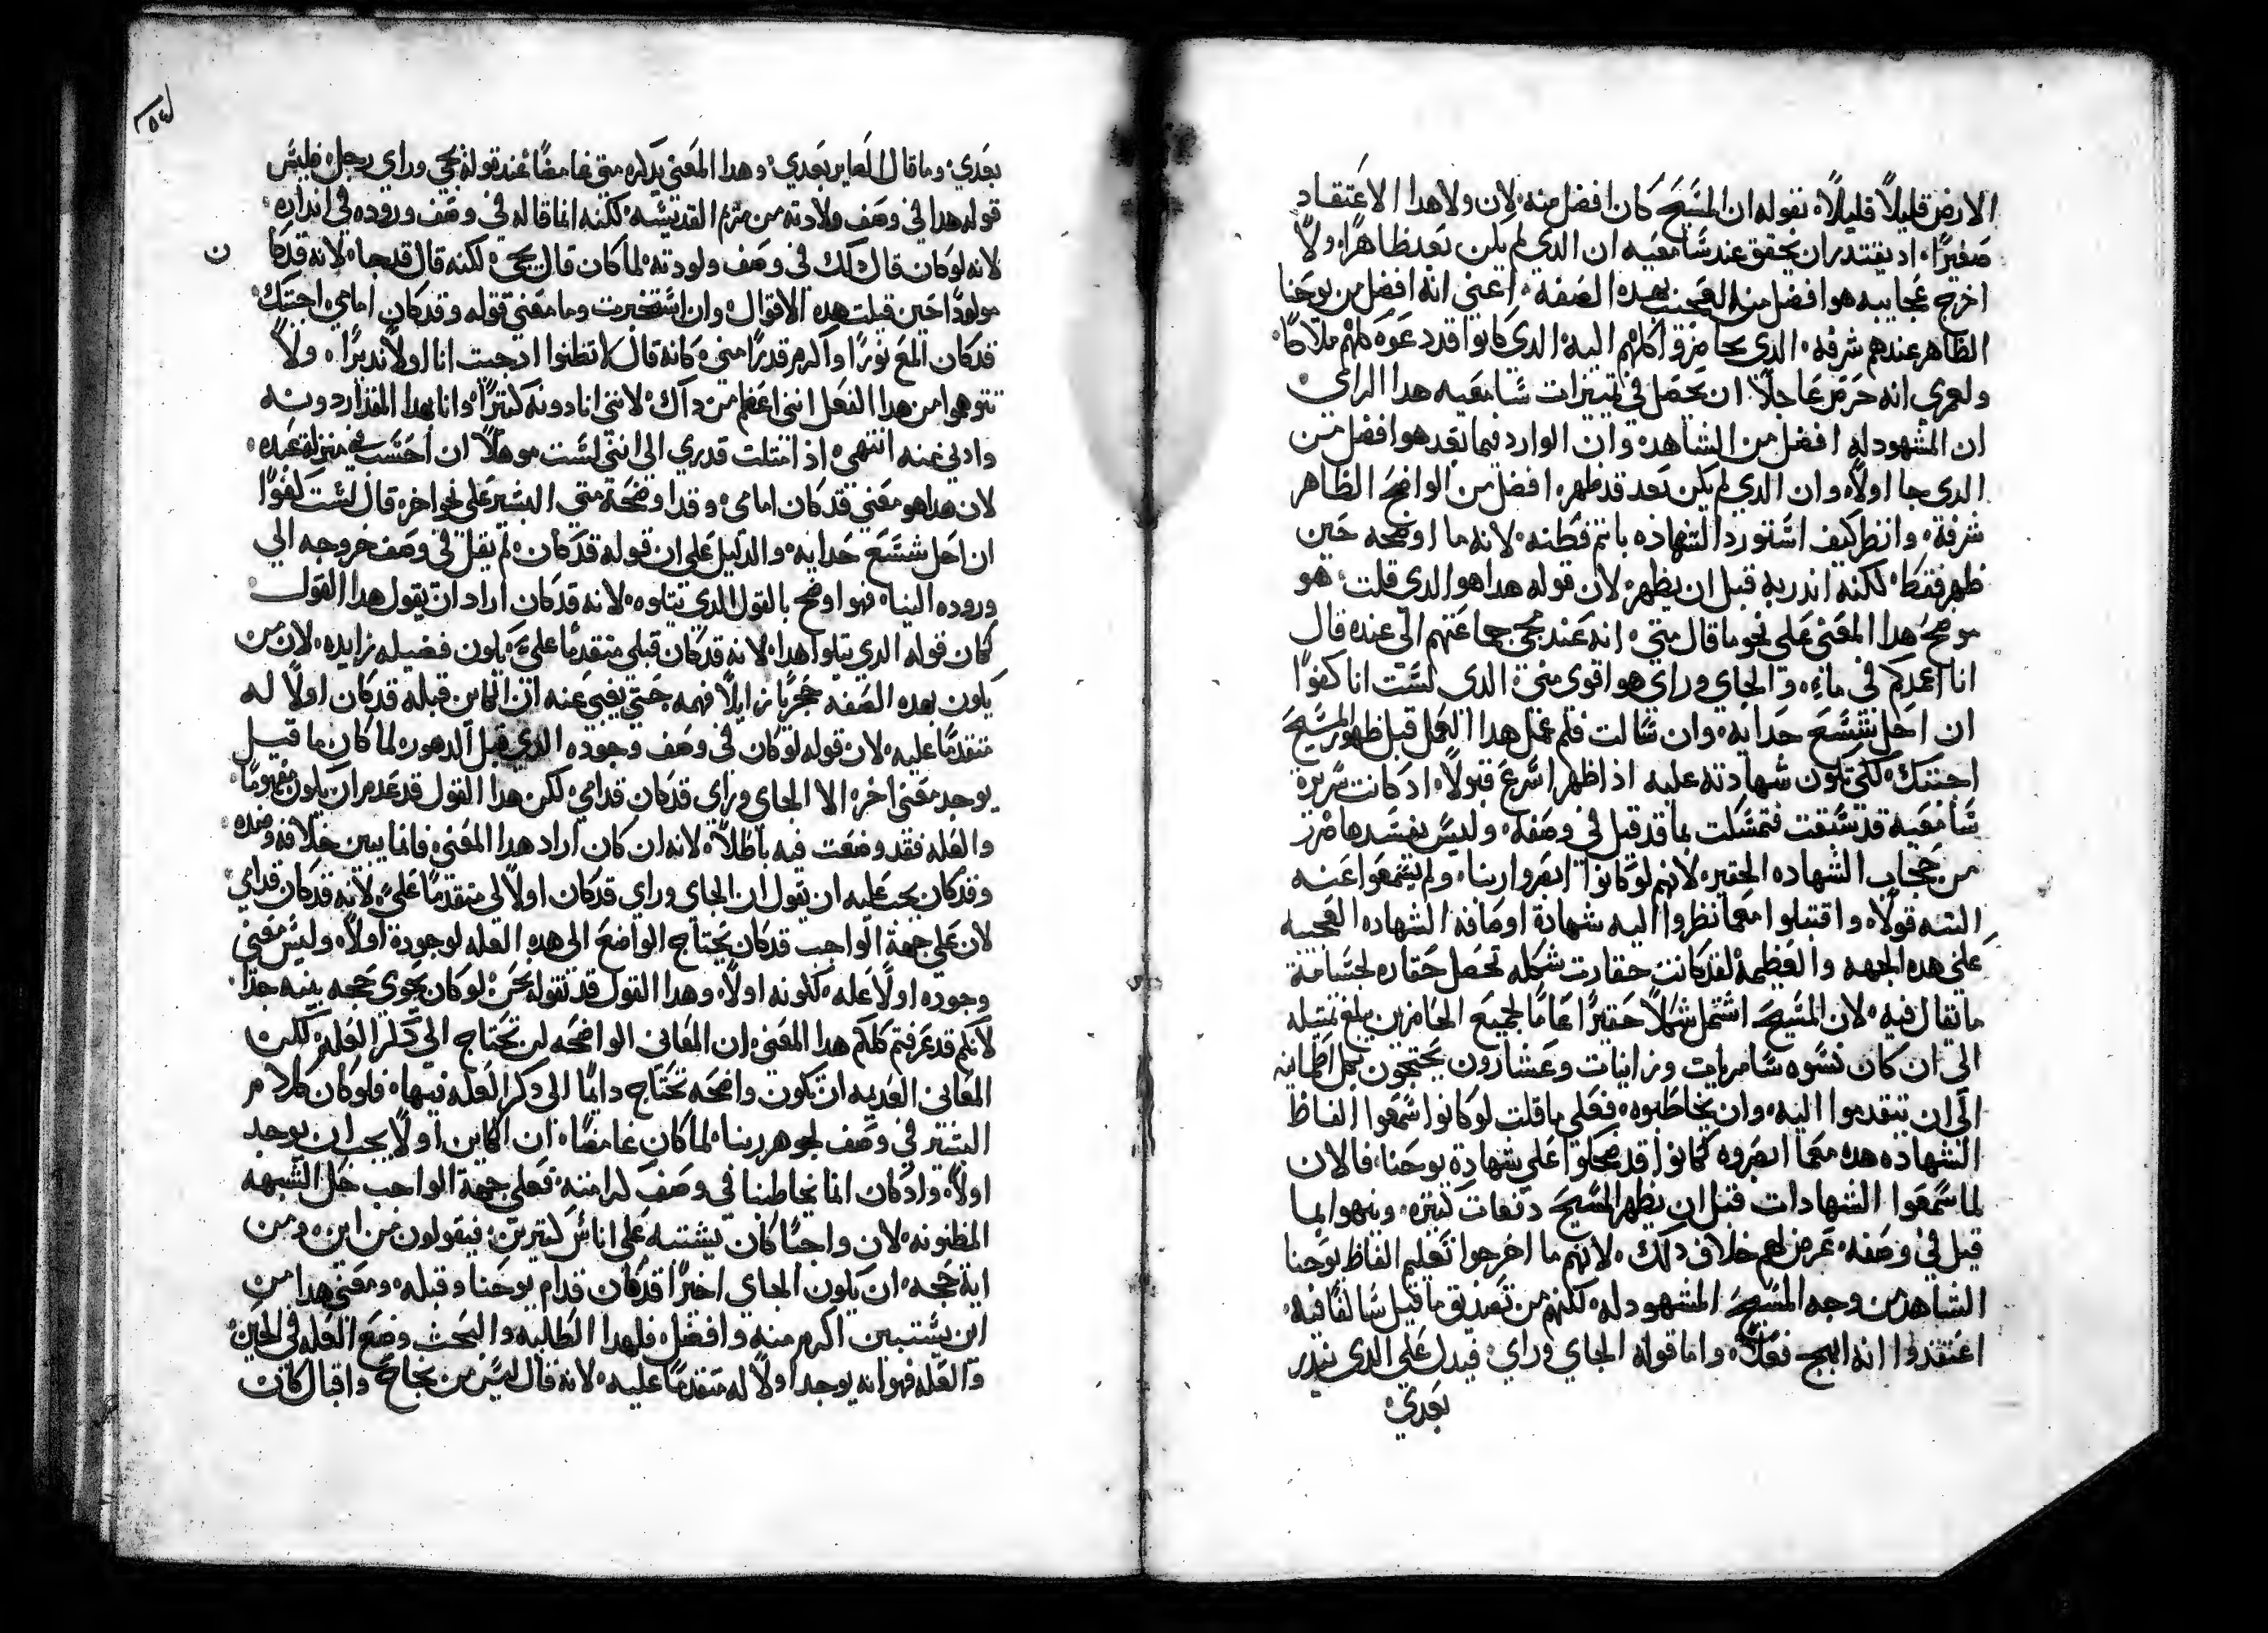 الارض قليلاً قليلاً، بقوله ان المسيح كان افضل منه، لان ولا هدا الاعتقاد
صغيرًا، اد يقتدر ان يحقق عند سامعيه ان الدى لم يكن بعد ظاهرًا، ولا
اخرج عجاييه هو افضل منه العجيب بهده الصفه، اعني انه افضل من يوحنا
الظاهر عندهم شرفه، الدى يحاضروا كلهم اليه، الدى كانوا قد دعوه كلهم ملاكًا،
ولعمري انه حرص عاجلاً، ان يحصل في تمييزات سامعيه هدا الراى
ان المشهود له افضل من الشاهد، وان الوارد فيما بعد هو افضل من
الدى جا اولاً، وان الدي لم يكن بعد قد ظهر، افضل من الواضح الظاهر
شرفة، وانظر كيف استورد الشهاده باتم فطنه، لانه ما اوضحه حين
ظهر فقط، لكنه اندر به قبل ان يظهر، لان قوله هدا هو الدى قلت، هو
موضح هدا المعنى على نحو ما قال متي، انه عند مجي جماعتهم الى عنده قال
انا اعمدكم في ماءٍ، والجاي وراي هو اقوى مني، الدى لست انا كفوًا
ان احل شسع حدايه، وان سالت فلم عمل هدا العمل قبل ظهور المسيح
اجبتك، لكي تكون شهادته عليه اذا ظهر اسرع قبولاً، اد كانت سريرة
سامعيه قد سبقت فتمسكت بما قد قيل في وصفه، وليس يفسدها ضرر
من حجاب الشهاده الحقيره، لانهم لو كانوا ابصروا ربنا، ولم يسمعوا عنه
البته قولاً، واقتبلوا معما نظروا اليه شهادة اوصافه الشهاده العجيبه
على هده الجهه والعظيمة، لقد كانت حقارت شكله تحصل حقاره لجسامة
ما يقال فيه، لان المسيح اشتمل شكلاً حقيرًا عامًا لجميع الحاضرين يبلغ تمثيله
الى ان كان نسوه سامريات وزانيات وعشارون يحتجون بكل اطمانيه
الى ان يتقدموا اليه، وان يخاطبوه، فعلى ما قلت لو كانوا سمعوا الفاظ
الشهاده هده معما ابصروه كانوا قد ضحكوا على شهادة يوحنا، فالان
لما سمعوا الشهادات قبل ان يظهر المسيح دفعات كثيره، وبنهوا بما
قيل في وصفه، عرض لهم خلاف دلك، لانهم ما اخرجوا تعليم الفاظ يوحنا
الشاهد من وجه المسيح المشهود له، لكنهم من تصديق ما قيل سالفًا فيه،
اعتقدوا انه ابهج فعلاً، واما قوله الجاي وراي، فيدل على الدى يندر
بعدي،
بعدي، وما قال الصاير بعدي، وهدا المعني يدكره متي غامضًا عند قوله يجي وراي رجل، فليس
قوله هدا في وصف ولادته من مريم القديسه، لكنه انما قاله في وصف وروده في انداره،
لانه لو كان قال دلك في وصف ولودته، لما كان قال يجي، لكنه قال قد جا، لانه قد كا ن
مولودًا حين قيلت هده الاقوال، وان استخبرت وما معني قوله وقد كان امامي، اجبتك،
قد كان المع نورًا واكرم قدرًا مني، كانه قال لا تظنوا اد جيت انا اولاً نديرًا، ولا
تتوهموا من هدا الفعل انني اعظم من داك، لانني انا دونه كثيرًا، وانا بهدا المقدار دونه
وادني عنه انتهي، اذ انتلت قدري الى انني لست موهلاً ان احسب في منزلة عبده،
لان هدا هو معني قد كان امامي، وقد اوضحة متي البشير على نحو اخر، قال لست كفوًا
ان احل شسع حدايه، والدليل على ان قوله قد كان، لم يقل في وصف خروجه الى
وروده الينا، فهو اوضح بالقول الدي يتلوه، لانه قد كان اراد ان يقول هدا القول
كان قوله الدي يتلوا هدا، لانه قد كان قبلي متقدمًا علي، يكون فضيله زايده، لان من
يكون بهده الصفه حجرًا زايلاً فهمه حتي يغبي عنه ان الكاين قبله قد كان اولاً له
متقدمًا عليه، لان قوله لو كان في وصف وجوده الدي قبل الدهور، لما كان ما قيل
يوجد معني اخر، الا الجاي وراي قد كان قدامي، لكن هدا القول قد عدم ان يكون مفهومًا،
والعله فقد وضعت فيه باطلاً، لانه ان كان اراد هدا المعني، فانما يبين خلافه وضده،
وقد كان يجب عليه ان يقول ان الجاى وراي قد كان اولاً لي متقدمًا علي، لانه قد كان قدامي،
لان علي جهة الواجب قد كان يحتاج الواضع الى هده العله لوجودة اولاً، وليس معني
وجوده اولاً عله، لكونه اولاً، وهدا القول قد نقوله نحن، لو كان يحوي حجه بينه جدًا،
لانكم قد عرفتم كلكم هدا المعني، ان المعاني الواضحه لن تحتاج الى دكر العله، لكن
المعاني العديمه ان تكون واضحه تحتاج دايمًا الى دكر العله فيها، فلو كان كلام
البشير في وصف لجوهر ربنا، لما كان غامضًا، ان الكاين اولاً يجب ان يوجد
اولاً، واد كان انما يخاطبنا في وصف كرامته، فعلى جهة الواجب حل الشبهه
المظنونه، لان واجبًا كان يشتبه على اناس كثيرين، فيقولون من اين، ومن
اية حجه، ان يكون الجاي اخيرًا قد كان قدام يوحنا وقبله، ومعني هدا من
اين يستبين اكرم منه وافضل، فلهدا الطلبه والبحث وضع العله في الحين،
والعله فهو انه يوجد اولاً له متقدمًا عليه، لانه قال ليس من نجاح واقبال كان